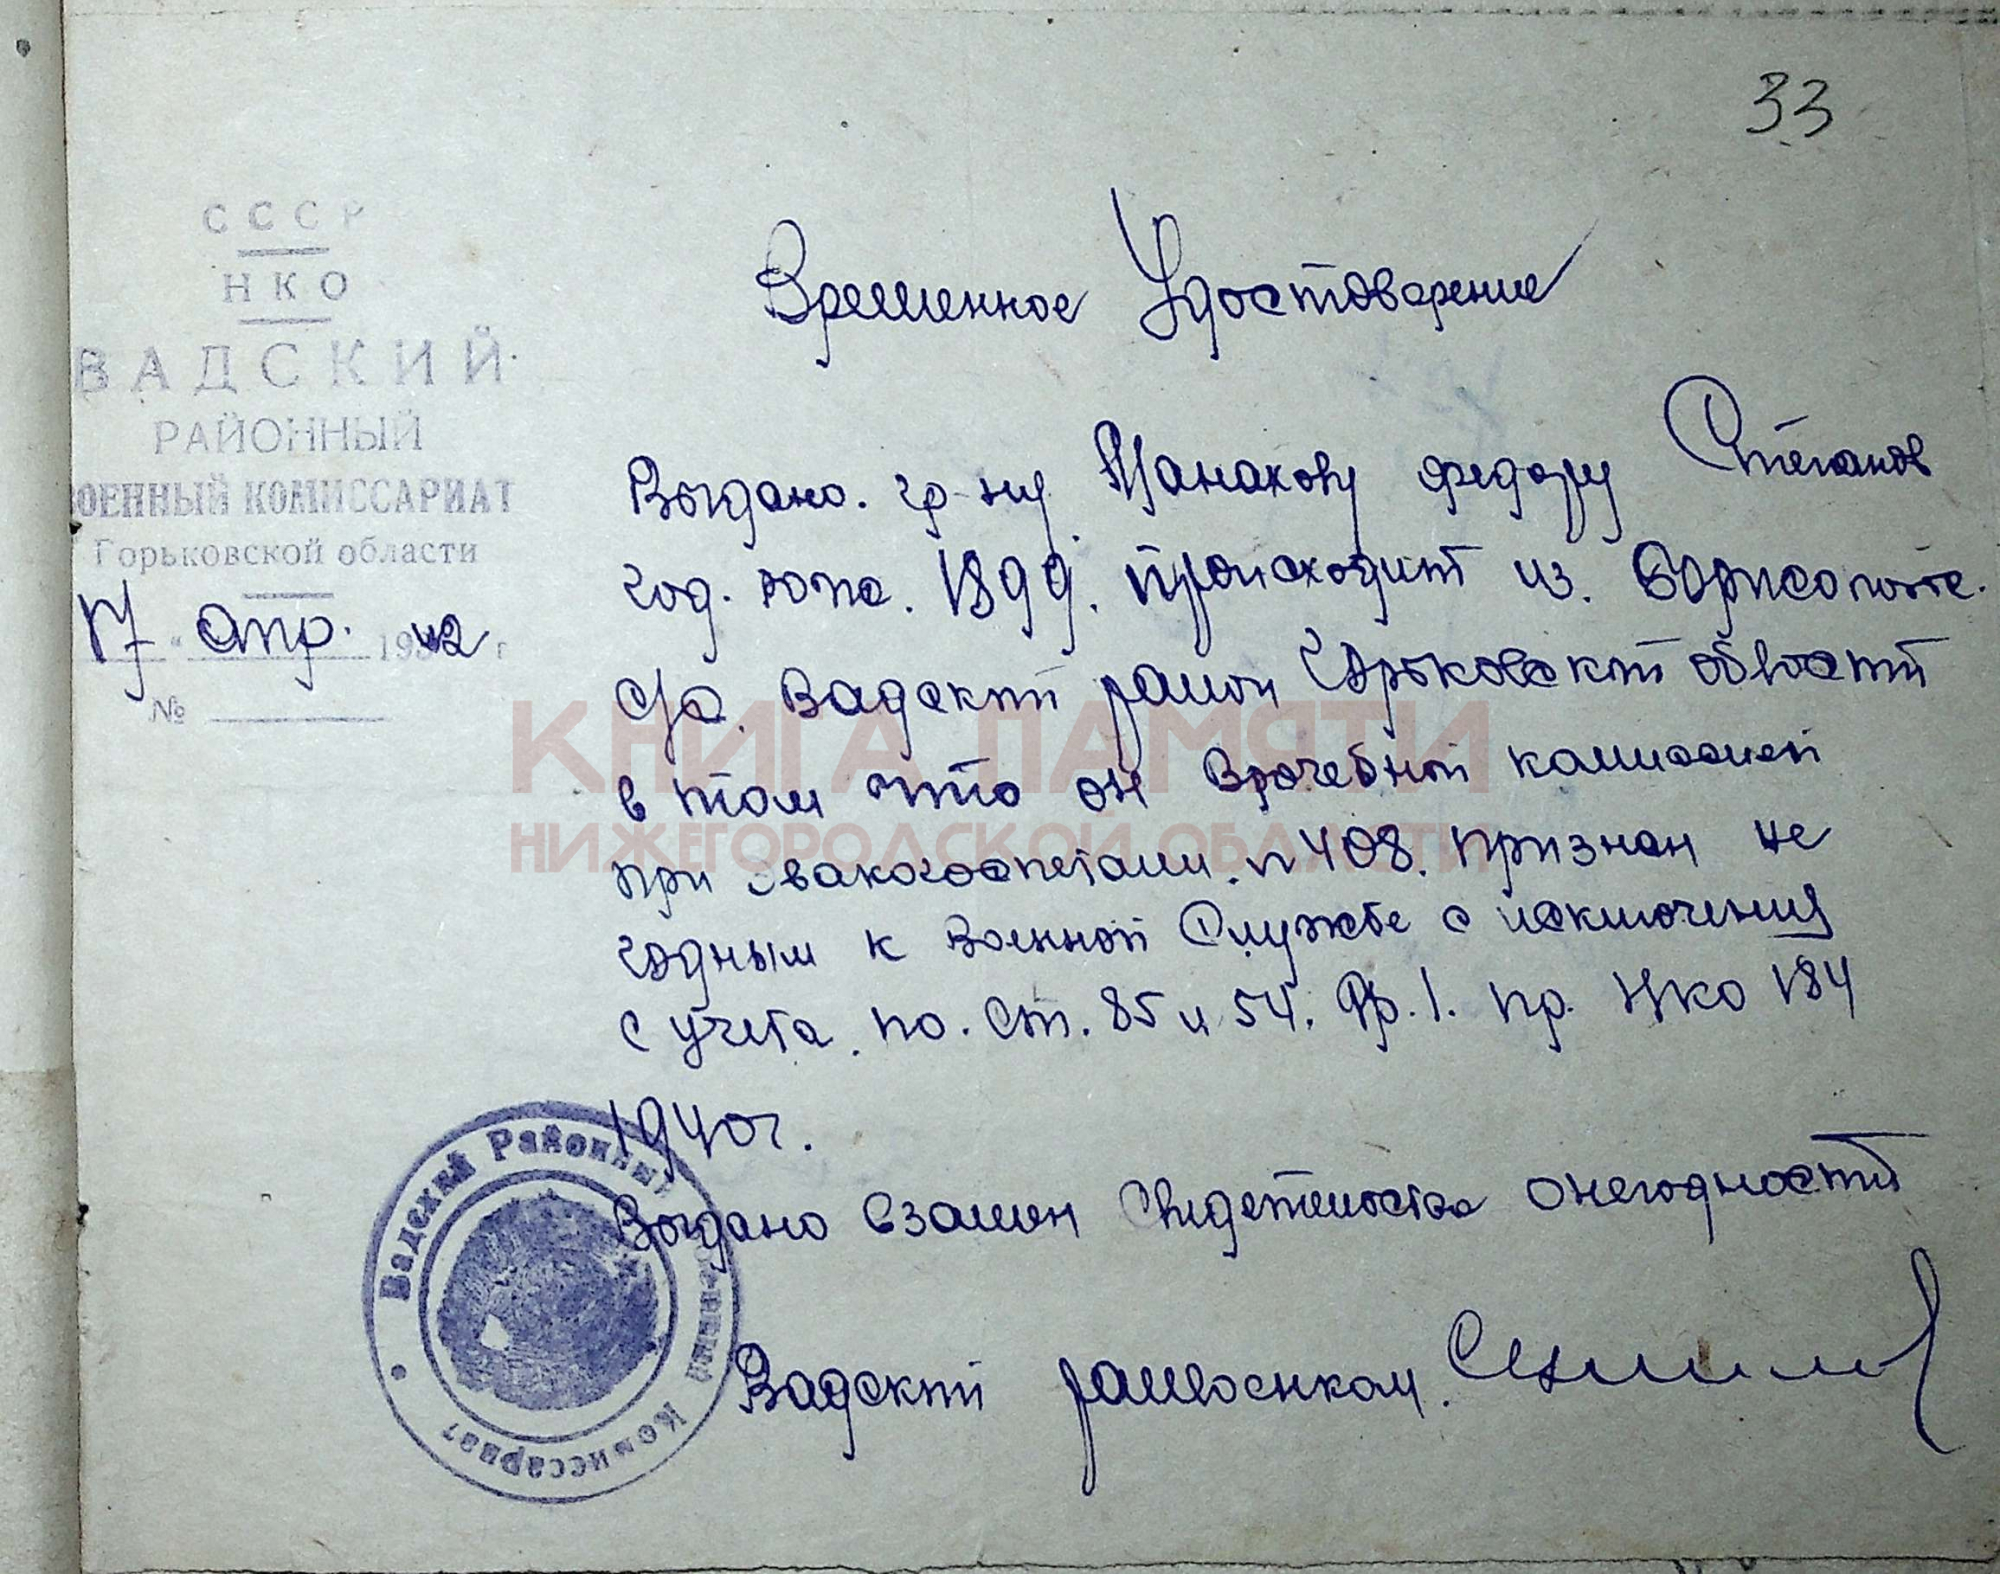 33
СССР
НКО
ВАДСКИЙ
РАЙОННЫЙ
ВОЕННЫЙ КОМИССАРИАТ
Горьковской области
17 " апр. 1942 г
№
Временное Удостоварение
Выдано. гр-ну. Манахову Федору Степанов
год. рожд. 1899. происходит из. Борисополье.
с/с. Вадский район Горьковскй области
в том что он врачебной комиссией
при эвакогоспетали. N 408. признан не
годным к военной службе с исключения
с учета. по. ст. 85 и 54. Гр. 1. пр. НКО 184
1940г.
Выдано взамен свидетельства о негодности
Вадский райвоенком.
Вадский Районный Военный Комиссариат
КНИГА ПАМЯТИ
НИЖЕГОРОДСКОЙ ОБЛАСТИ